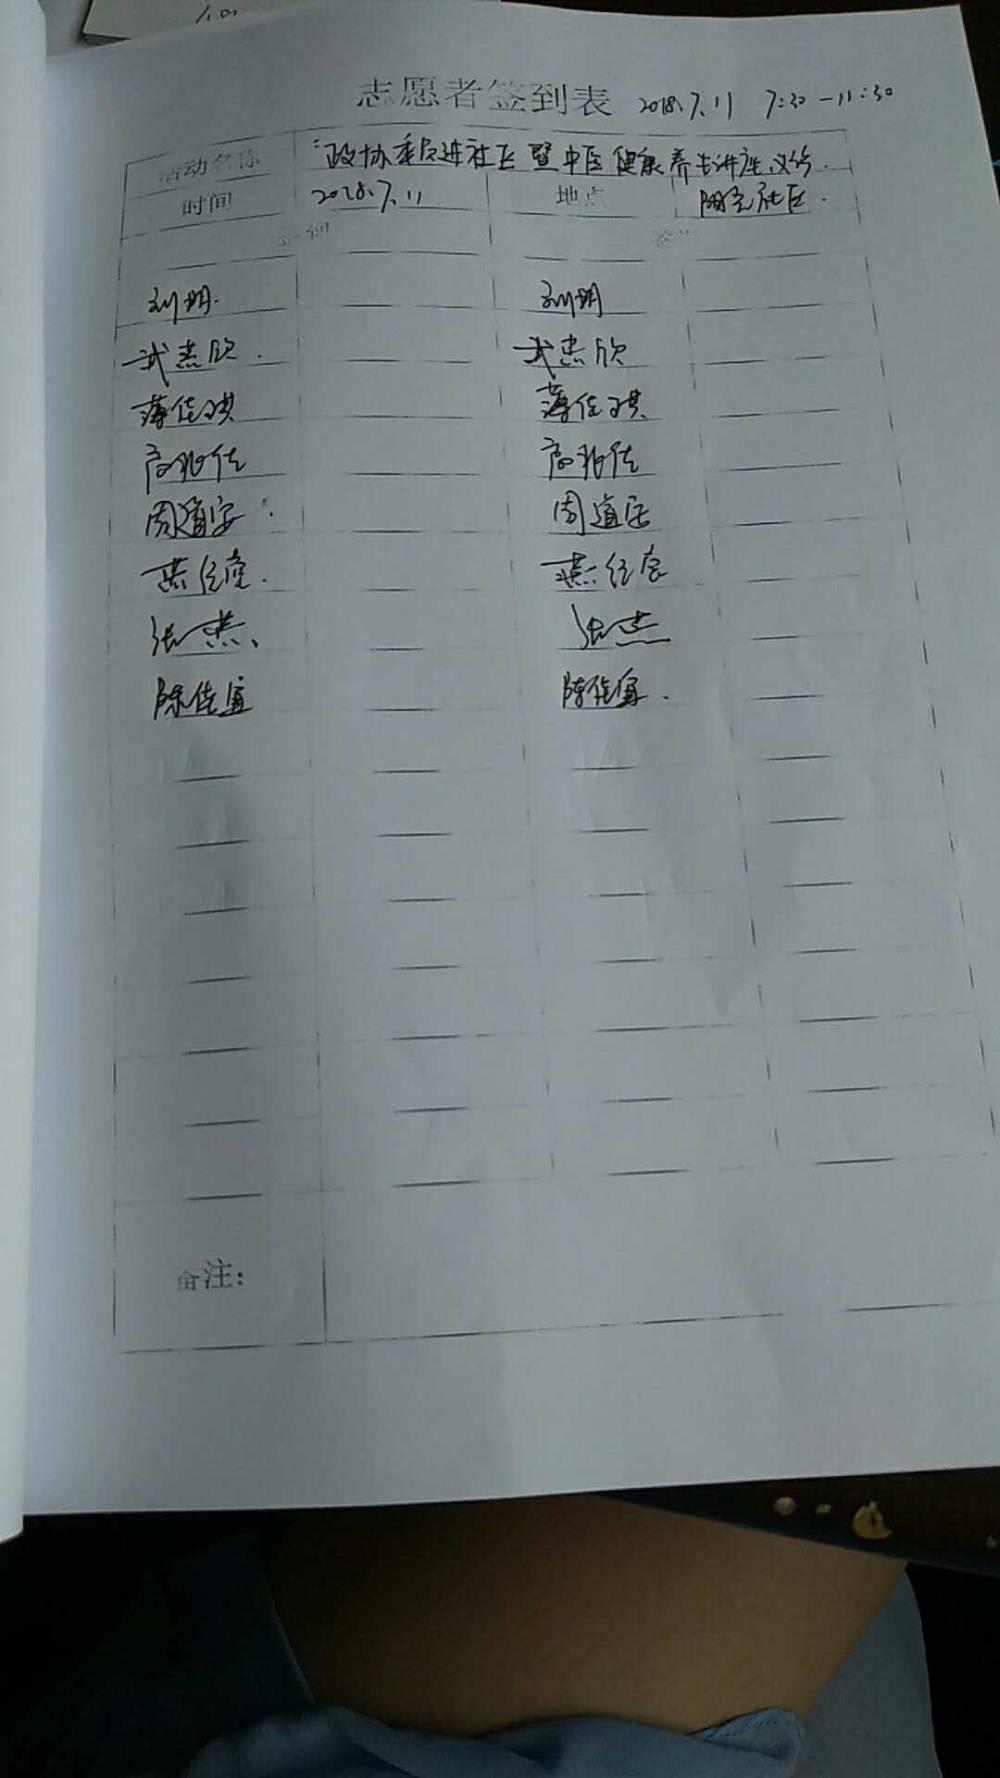 志愿者签到表 2018.7.11 7:30-11:30
活动名称 "政协委员进社区暨中医健康养生讲座、义诊.
时间 2018.7.11 地点 阳光社区.
签到 签出
刘玥. 刘玥
武志欣. 武志欣
薄佳琪 薄佳琪
高兆佳 高兆佳
周道宇. 周道宇
张 张
陈佳宜 陈佳宜.
备注: